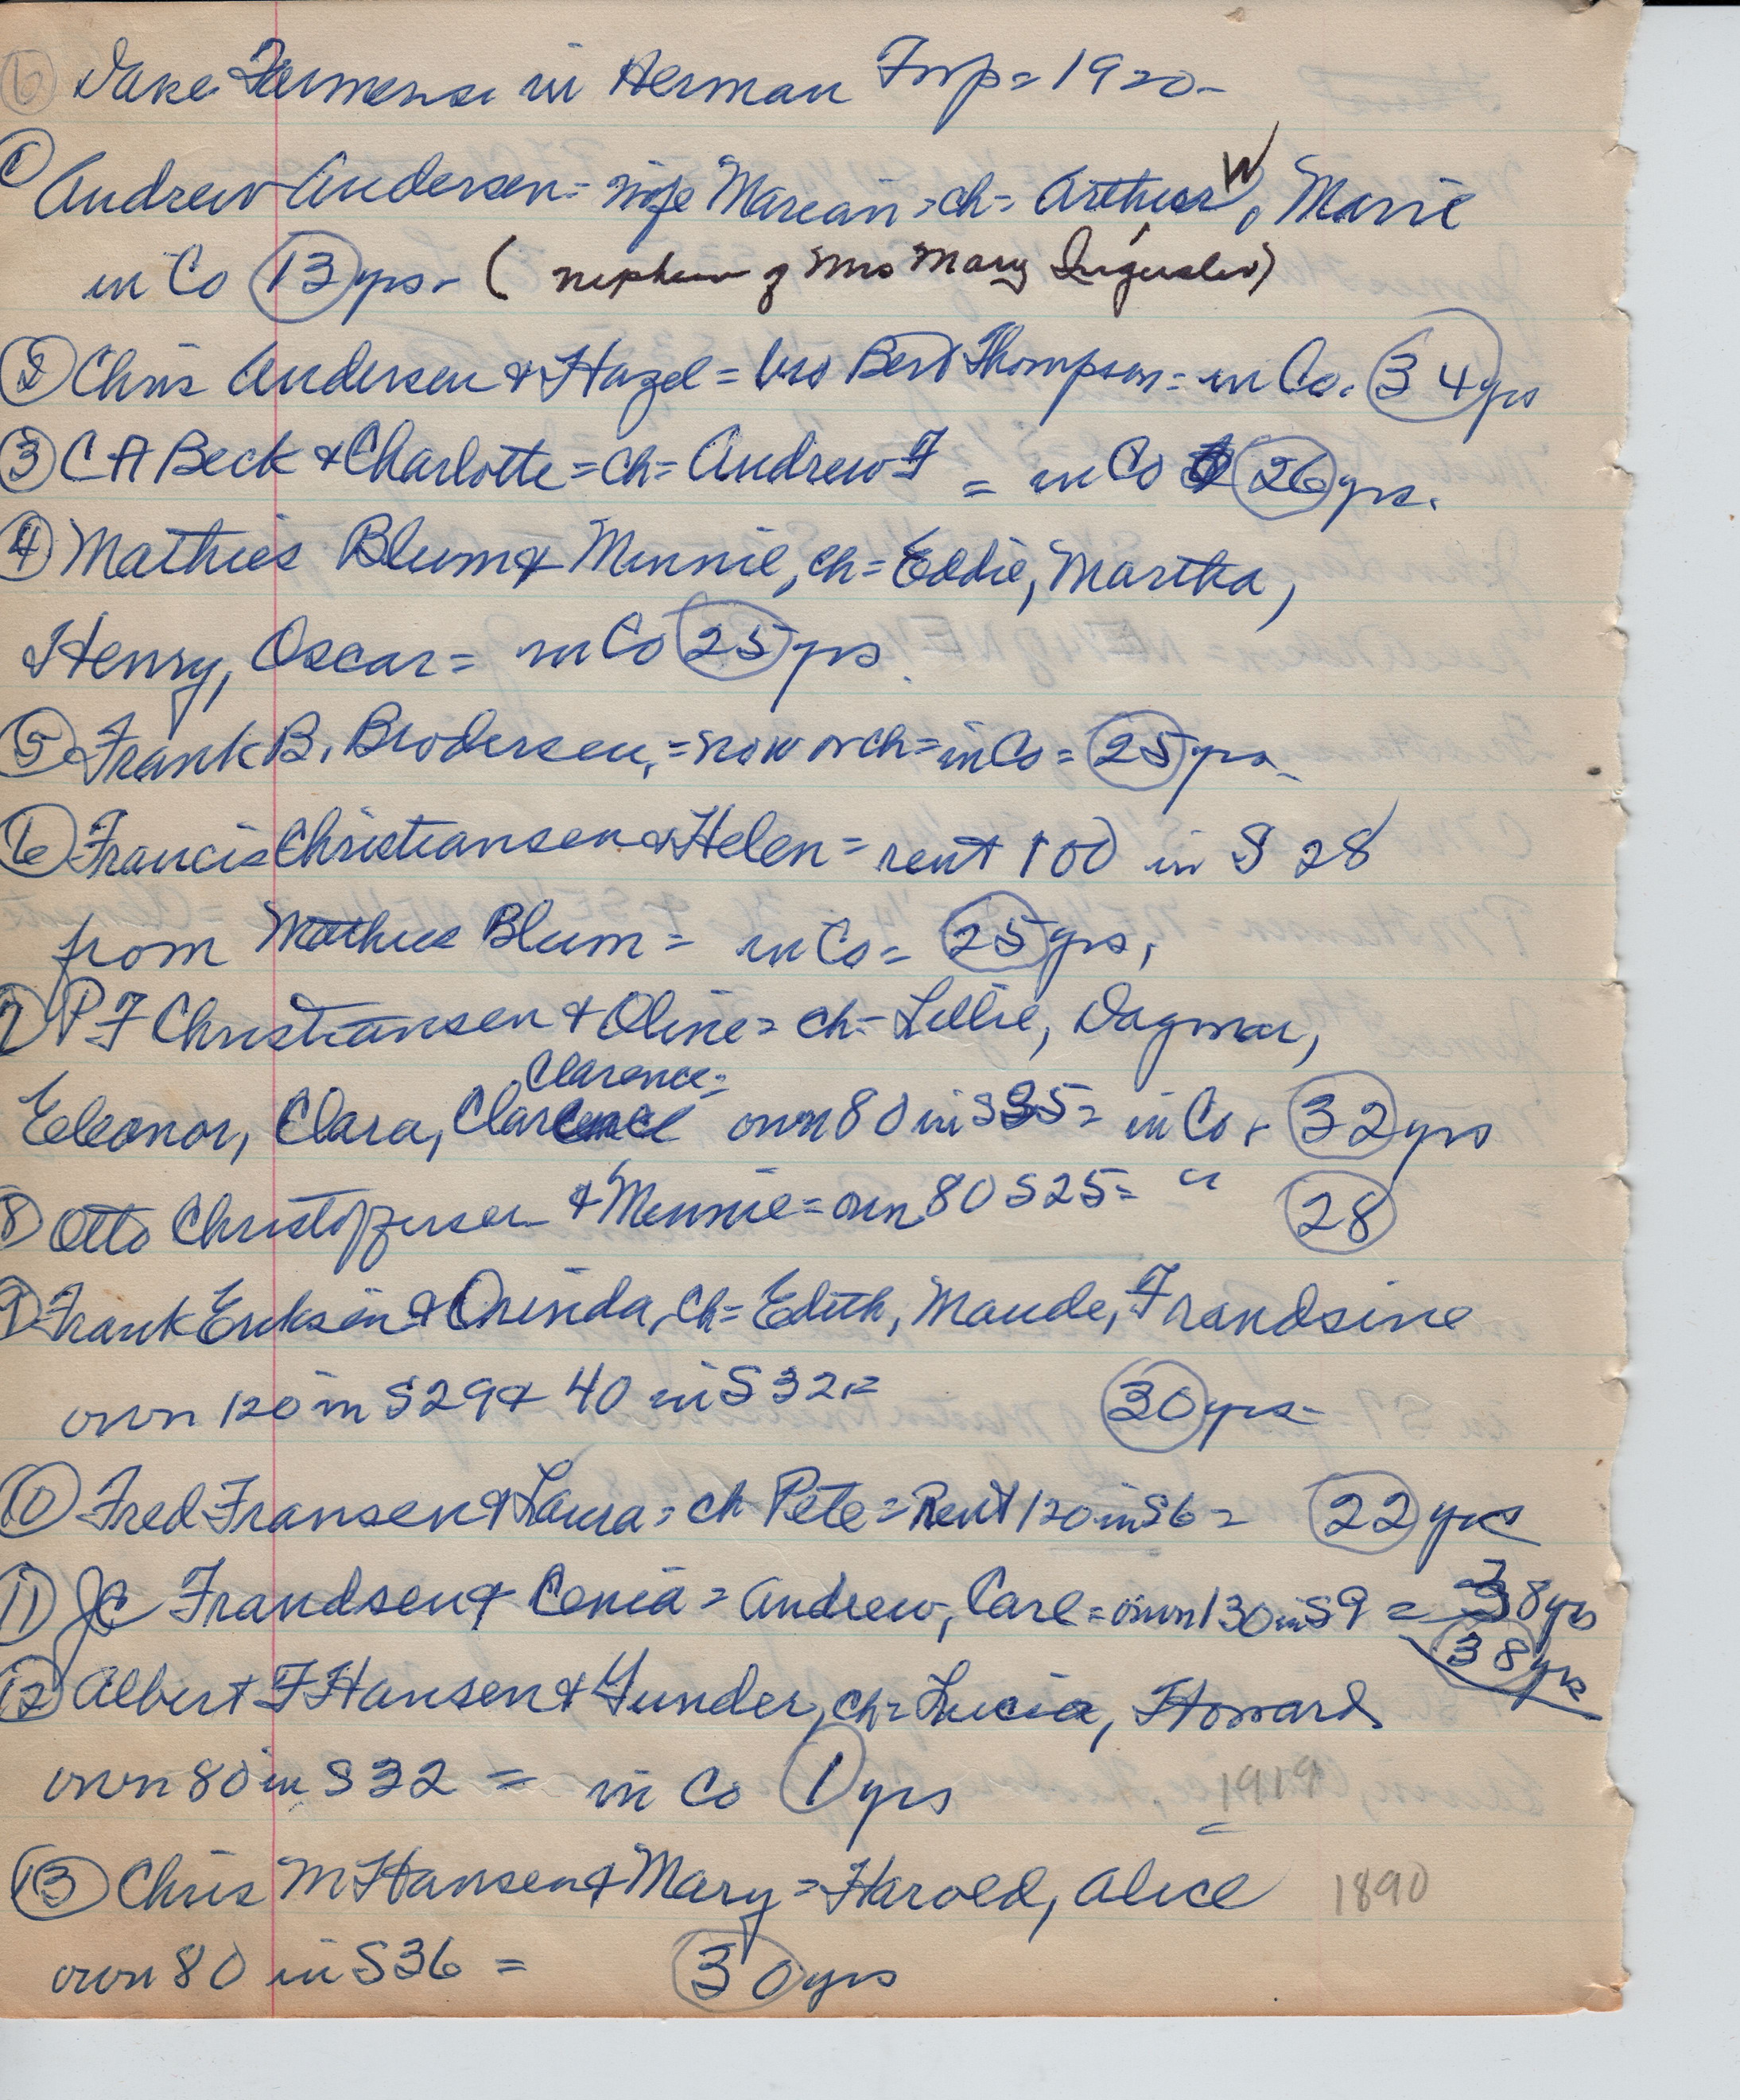 ⑥ Dane Farmers in Herman Twp = 1920 -
① Andrew Andersen = wife Marian = ch = Arthur W, Marie
in Co 13 yrs. ( nephew of Mrs Mary )
② Chris Andersen & Hazel = Bert Thompson = in Co. 34 yrs
③ C A Beck & Charlotte = ch = Andrew F = in Co 26 yrs.
④ Mathies Blum & Minnie, ch = Eddie, Martha,
Henry, Oscar = in Co 25 yrs
⑤ Frank B. Brodersen, = no w or ch = in Co = 25 yrs -
⑥ Francis Christiansen & Helen = rent 100 in S 28
from Mathies Blum = in Co = 25 yrs,
7 P F Christiansen & Oline = ch = Lillie, Dagmar,
Clarence =
Eleonor, Clara, Clarence own 80 in S35 = in Co. 32 yrs
8 Otto Christoffersen & Minnie = own 80 S25 = " 28
9 Frank Eriksen & Orinda, ch = Edith, Maude, Frandsine
own 120 in S29 & 40 in S32 = 30 yrs -
10 Fred Fransen & Laura = ch Pete = Rent 120 in S6 = 22 yrs
11 JC Frandsen & Cenia = Andrew, Carl = own 130 in S9 = 38 yrs
38 yrs
12 Albert F Hansen & Gunder, ch = Lucia, Howard
own 80 in S32 = in Co 1 yrs 1919
13 Chris M Hansen & Mary = Harold, Alice 1890
own 80 in S36 = 30 yrs